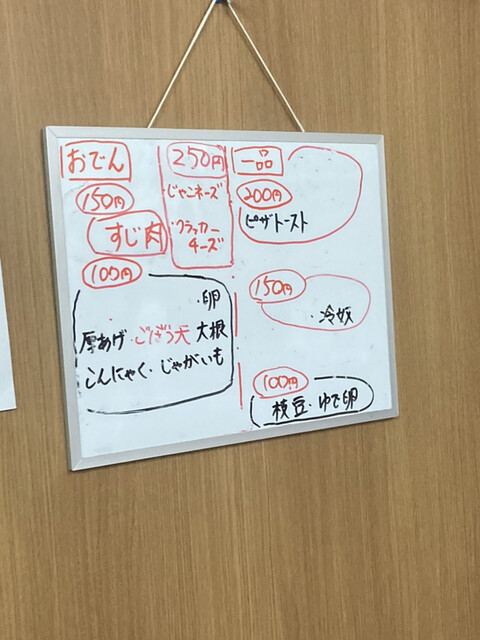 おでん
150円
すじ肉
100円
・卵
厚あげ・ごぼう天 大根
こんにゃく・じゃがいも
250円
・じゃこネーズ
・クラッカー
チーズ
一品
200円
ピザトースト
150円
・冷奴
100円
枝豆・ゆで卵